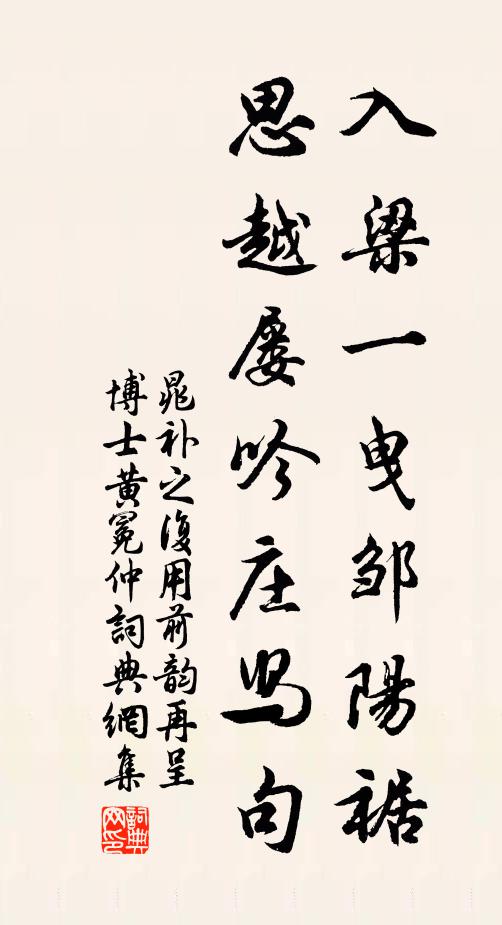 入梁一曳邹陽裾
思越屡吟庄舄句
晁补之復用前韵再呈
博士黄冕仲詞典網集
詞典
网印